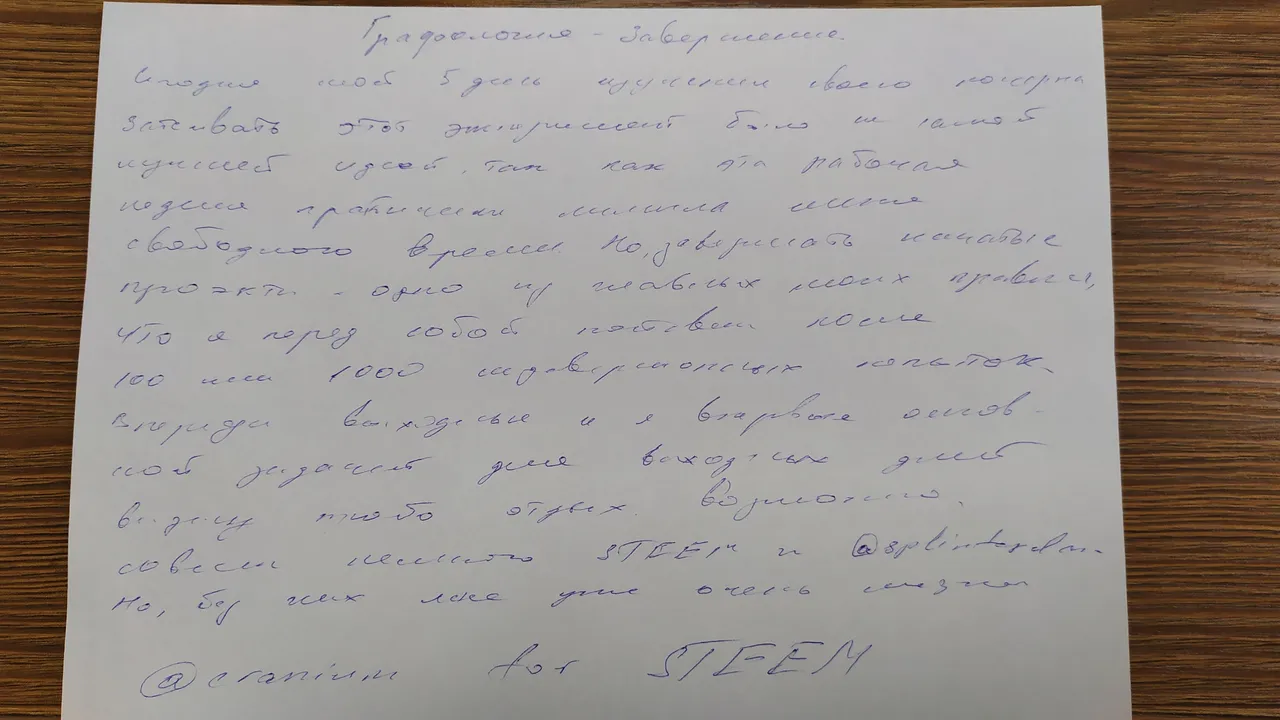 Графология - Завершение.
Сегодня мой 5 день изучения своего почерка
Затевать этот эксперимент было не самой
лучшей идеей, так как эта рабочая
неделя практически лишила меня
свободного времени. Но, завершать начатые
проэкты - одно из главных моих правил,
что я перед собой поставил после
100 или 1000 незавершонных попыток.
Впереди выходные и я впервые основ-
ной задачей для выходных дней
вижу отдых. Возможно,
совсем немного STEEM и @splinterlan
Но, без них мне уже очень
@cranium for STEEM